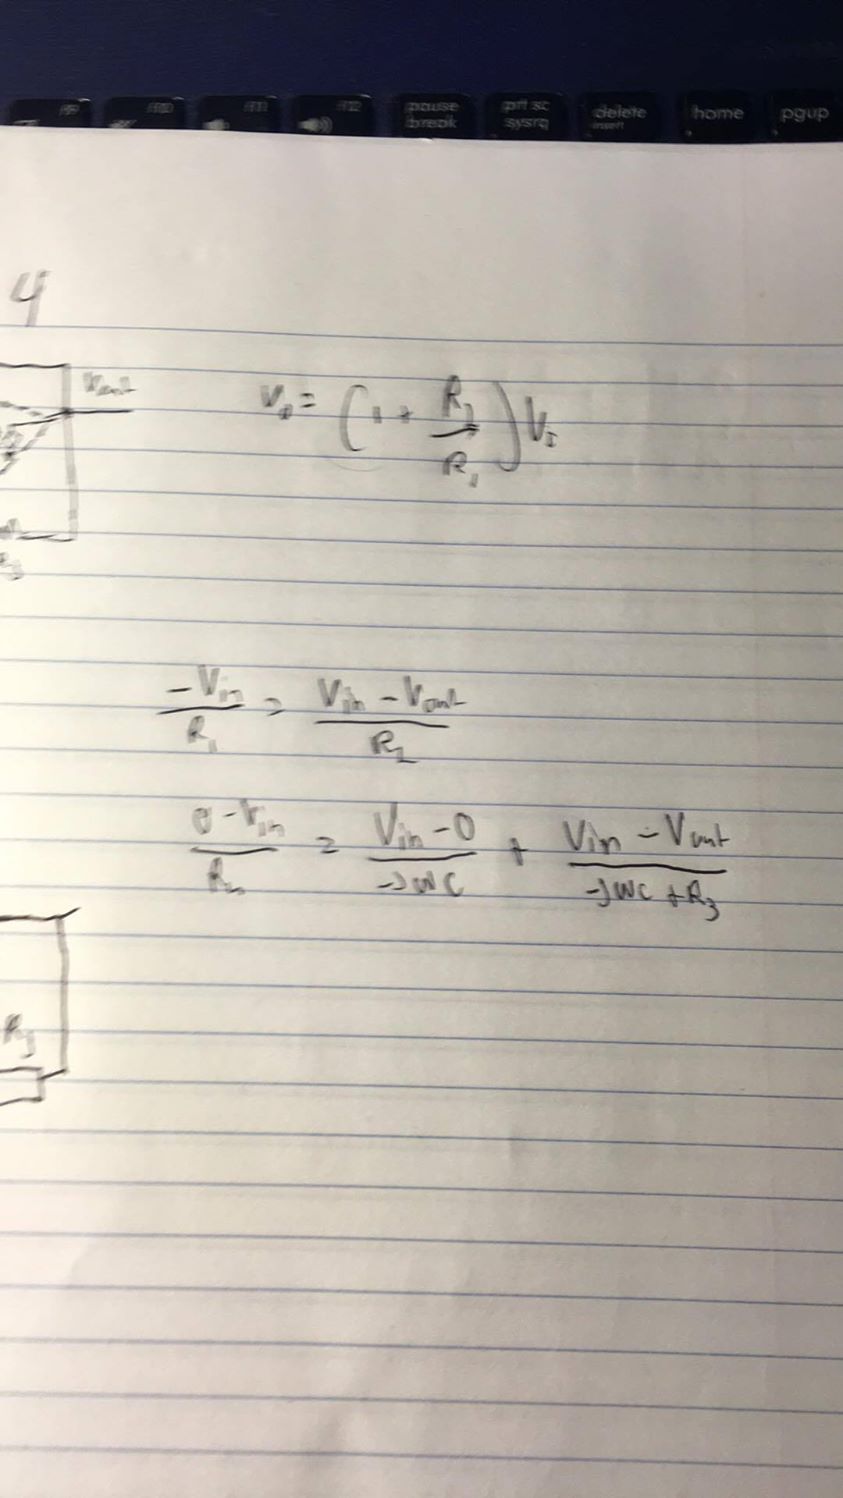 F9 F10 F11 F12 pause break prt sc sysrq delete insert home pgup
4
Vout
V₀ = (1 + R₂/R₁) Vᵢ
-Vin/R₁ = Vin - Vout/R₂
0 - Vin/Rin = Vin - 0/-jwc + Vin - Vout/-jwc + R₃
R₃